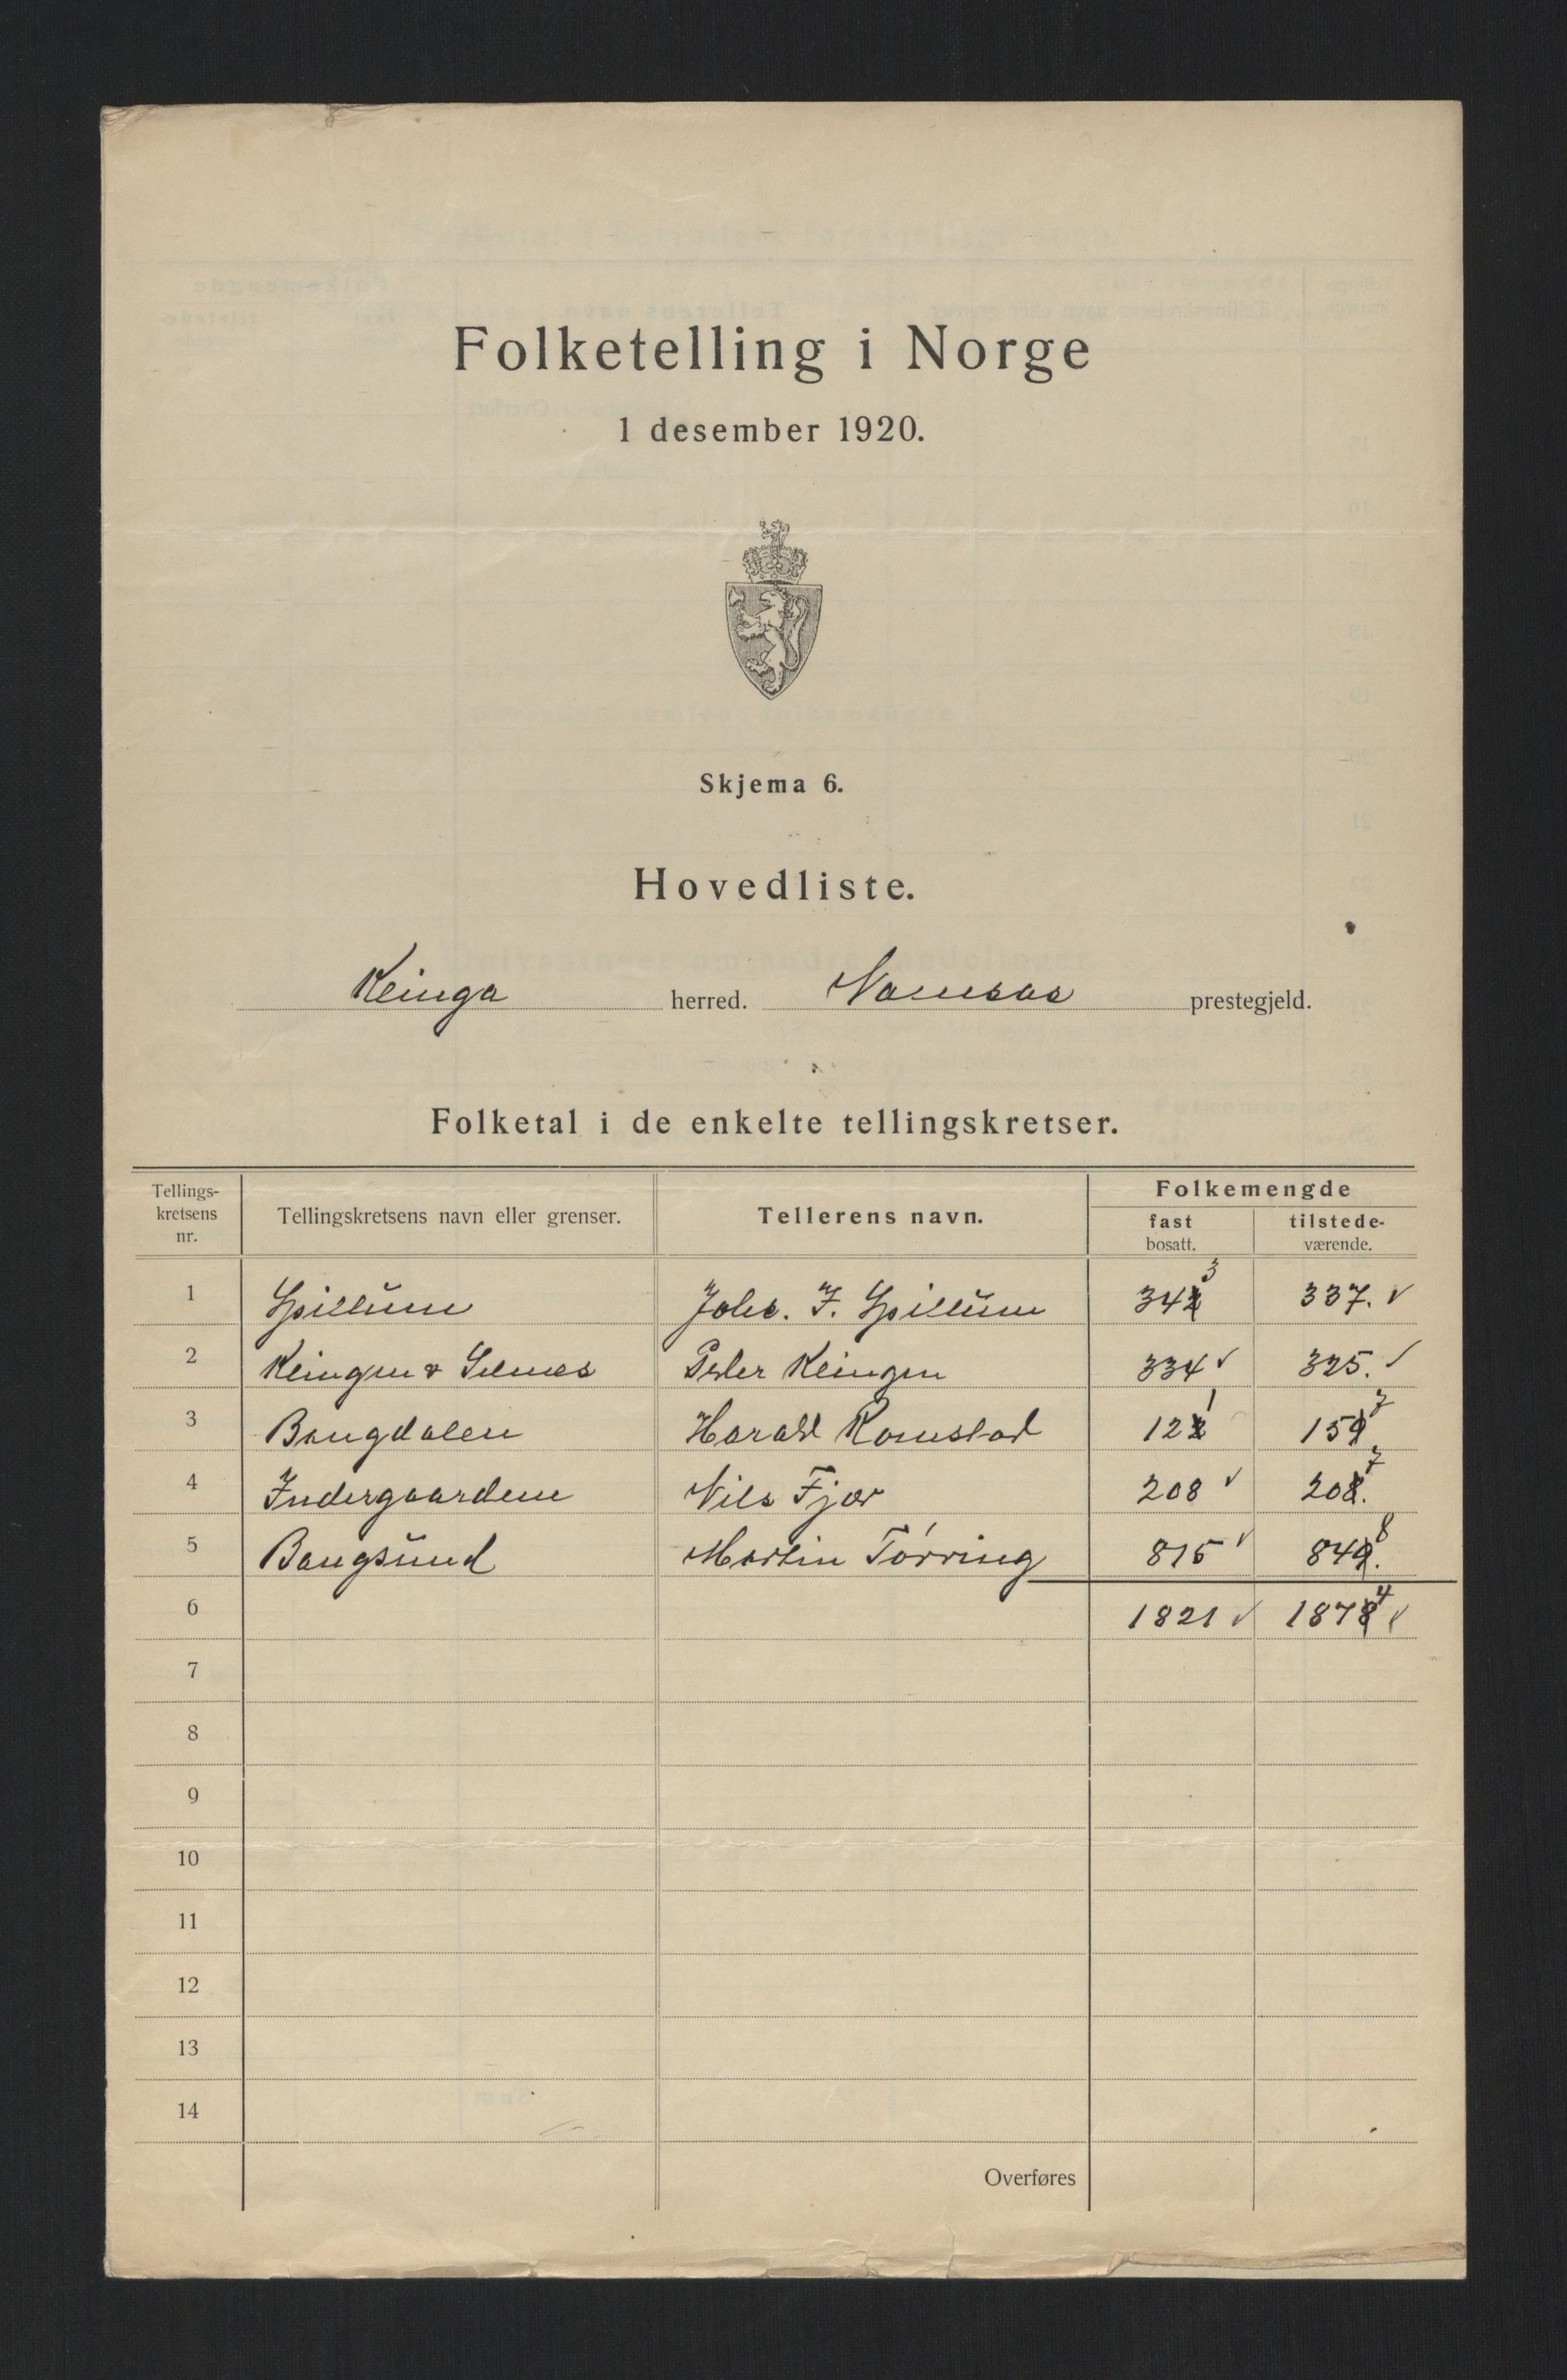 Folketelling i Norge
1 desember 1920.
Skjema 6.
Hovedliste.
Klinga herred. Namsos prestegjeld.
Folketal i de enkelte tellingskretser.
Tellings-kretsens nr. Tellingskretsens navn eller grenser. Tellerens navn. Folkemengde
fast bosatt. tilstede-værende.
1 Spillum Johs. F. Spillum 342 3 337. ✓
2 Klingen & Selnes Peder Klingen 334 ✓ 325. ✓
3 Bangdalen Harald Romstad 122 1 159 7
4 Indergaardene Nils Fjær 208 ✓ 208. 7
5 Bangsund Martin Tørring 815 ✓ 849. 8
6 1821 ✓ 1878 4 ✓
7
8
9
10
11
12
13
14
Overføres